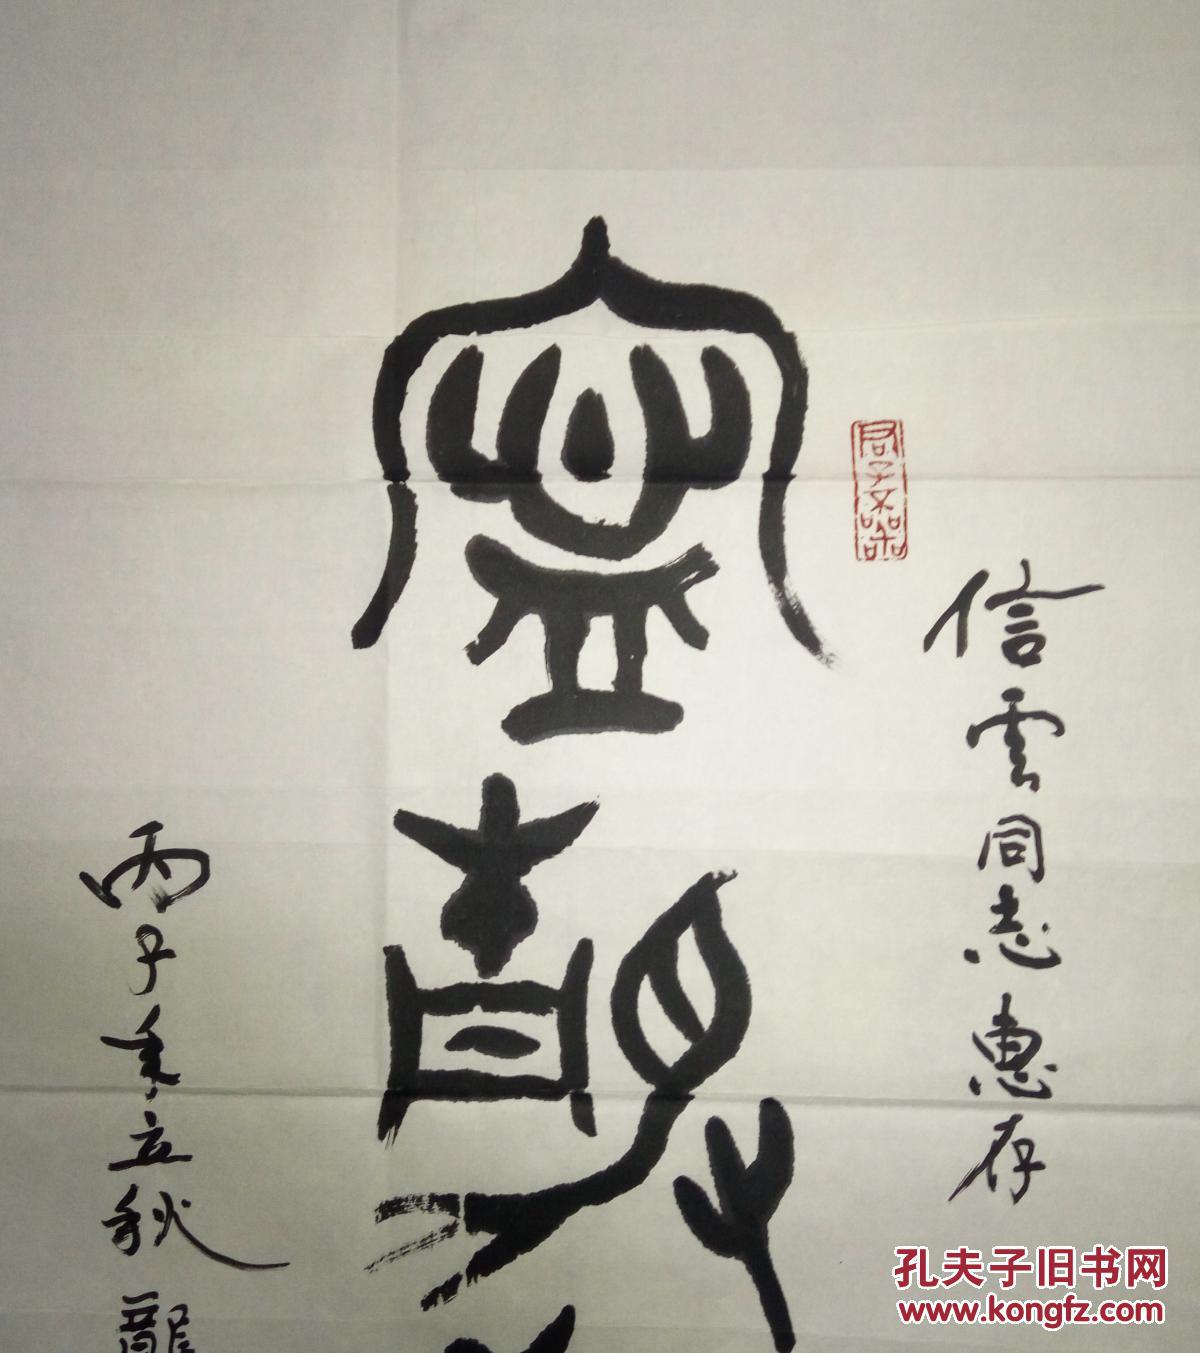 信雲同志惠存
寧靜
丙子年立秋 龍
孔夫子旧书网
www.kongfz.com